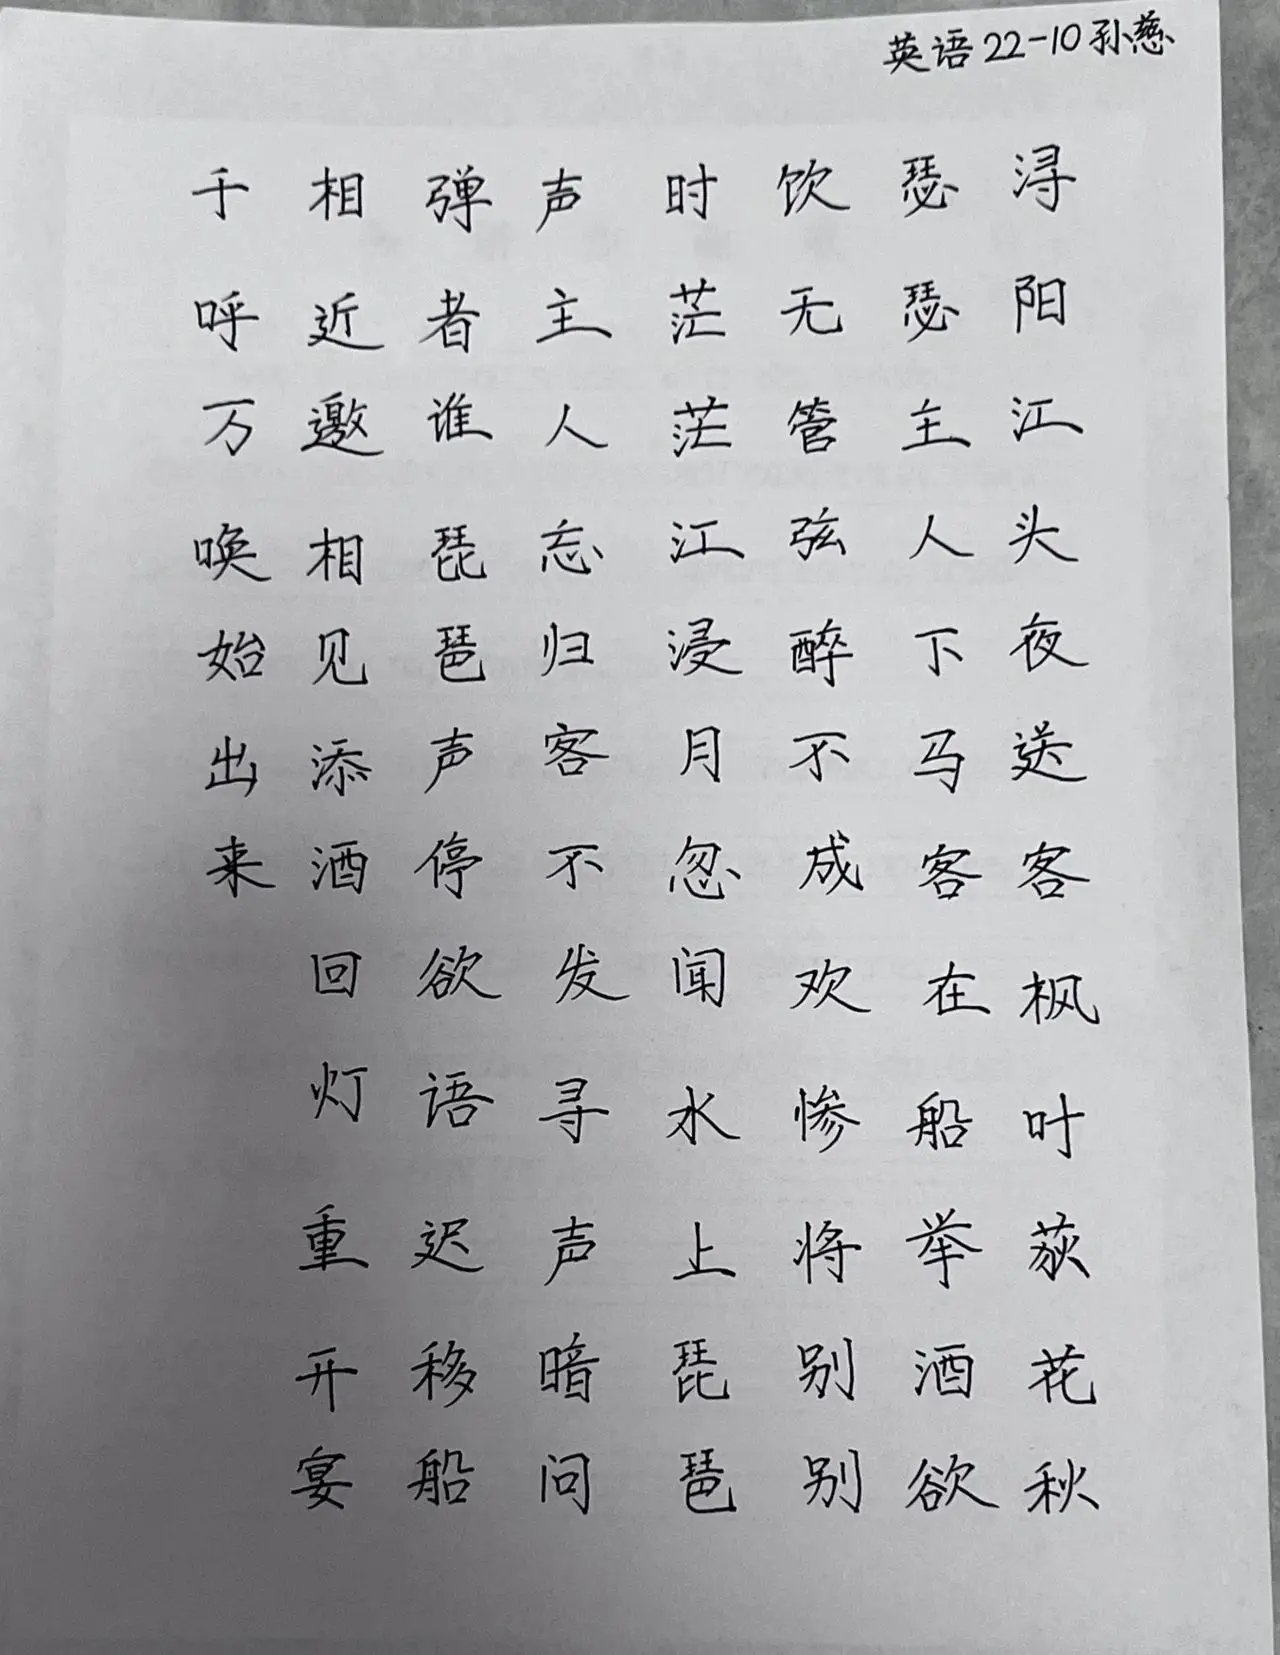 英语22-10孙慈
浔阳江头夜送客枫叶荻花秋
瑟瑟主人下马客在船举酒欲
饮无管弦醉不成欢惨将别别
时茫茫江浸月忽闻水上琵琶
声主人忘归客不发寻声暗问
弹者谁琵琶声停欲语迟移船
相近邀相见添酒回灯重开宴
千呼万唤始出来